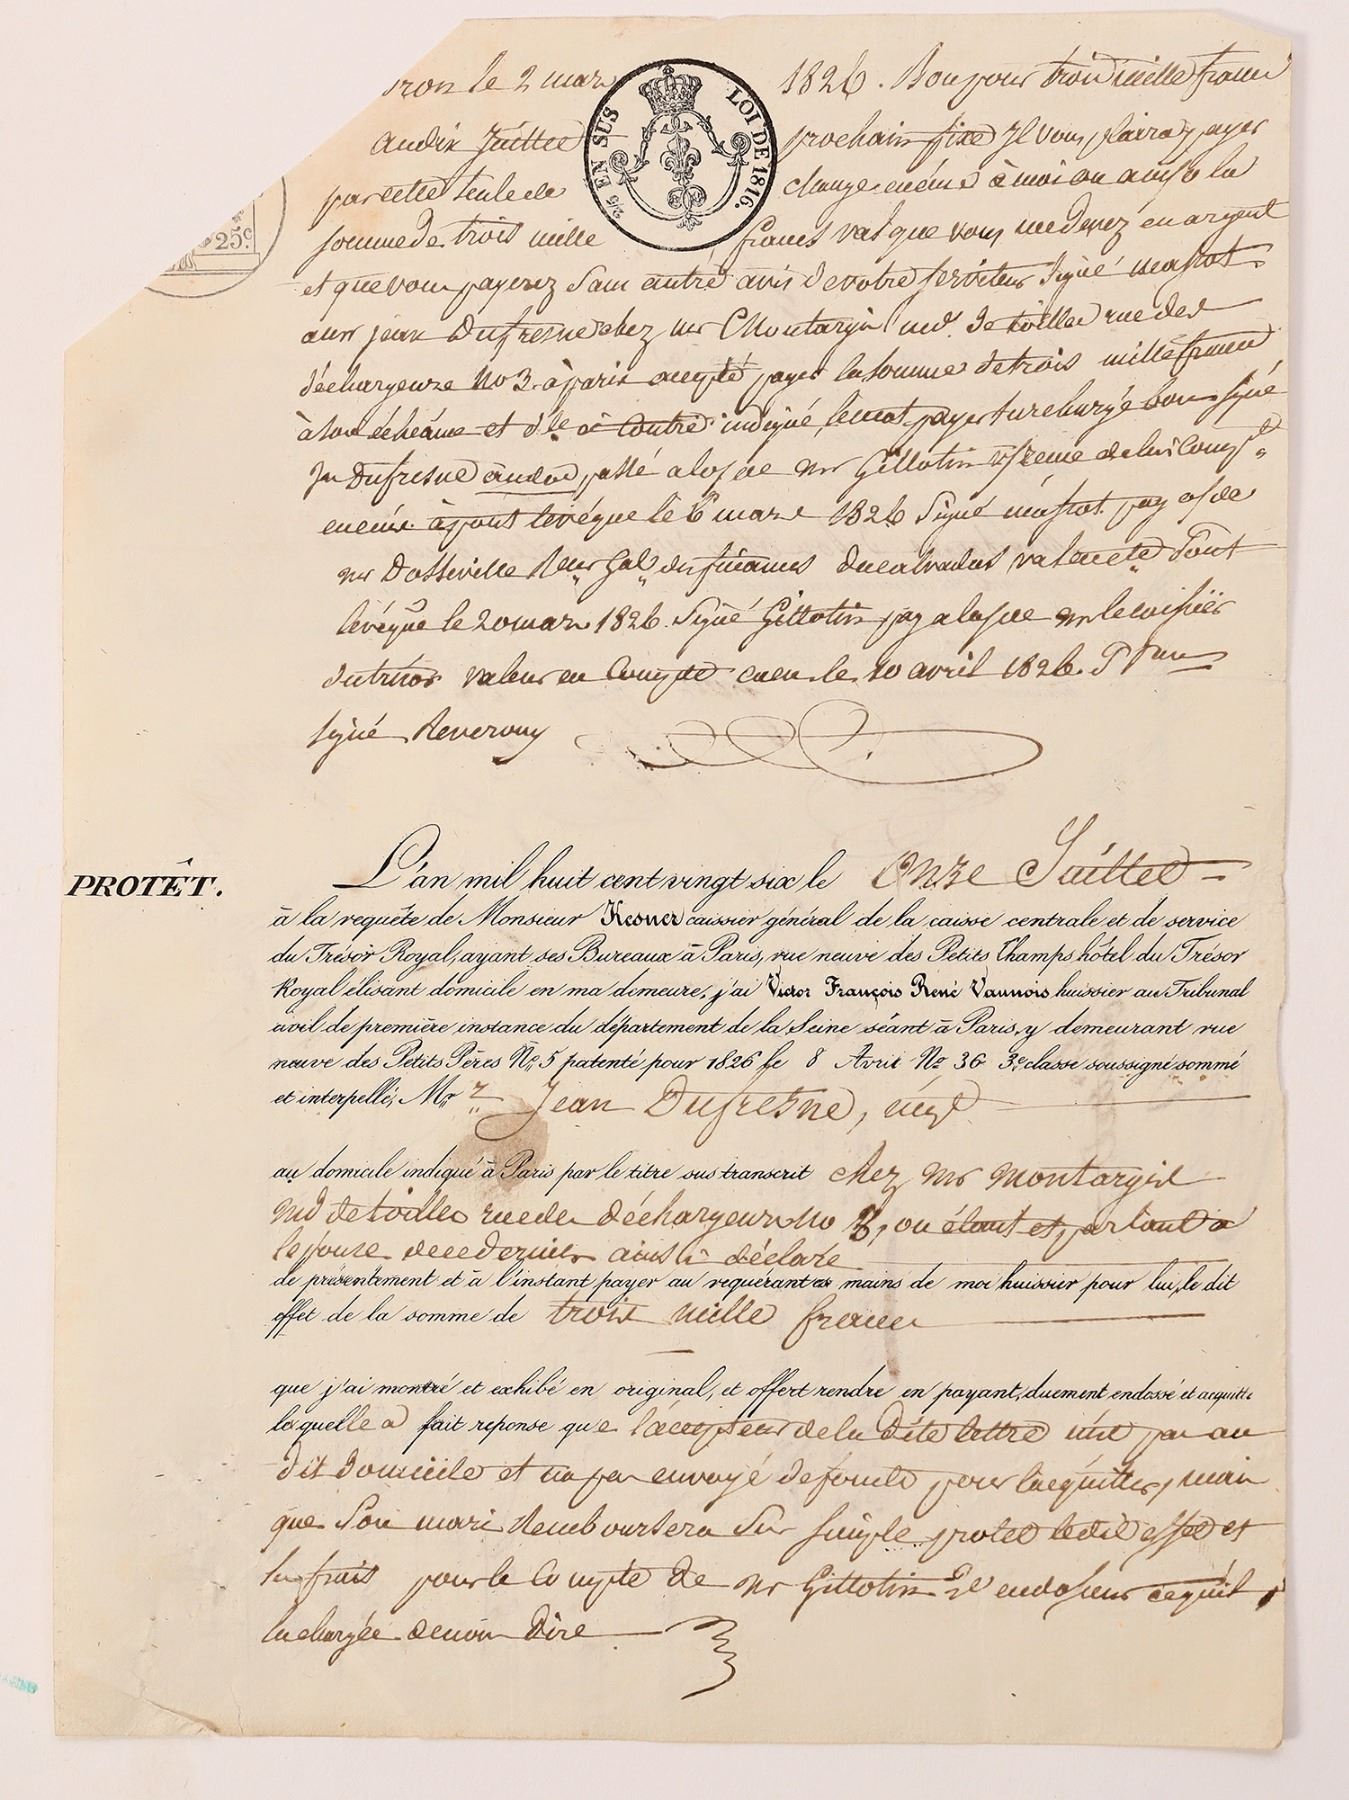 le 2 mars 1826. Bon pour trois mille francs
au dix Juillet prochain fixe Il vous plaira payer
par cette seule de change à moi ou a la
somme de trois mille francs val que vous me devez en argent
et que vous payerez sans autre avis de votre serviteur signé
a mr jean Dufresne chez mr Montargis md de toilles rue des
déchargeurs No 3. à paris accepté payer la somme de trois mille francs
à son échéance et d. contre indiqué, payer bon signé
Jn Dufresne au dos, passé a de mr Gillotin
le 6 mars 1826 signé pay de
mr Dosseville Recr Gal des finances du calvados valeur Pont
lévêque le 20 mars 1826. Signé Gillotin pay a de mr le caissier
du trésor valeur en compte caen le 10 avril 1826.
signé
2/5 EN SUS
LOI DE 1816.
25c.
PROTÊT.
L'an mil huit cent vingt six le Onze Juillet
à la requête de Monsieur Kesner caissier général de la caisse centrale et de service
du Trésor Royal, ayant ses Bureaux à Paris, rue neuve des Petits Champs hôtel du Trésor
Royal élisant domicile en ma demeure, j'ai Victor François René Vaunois, huissier au Tribunal
civil de première instance du département de la Seine séant à Paris, y demeurant rue
neuve des Petits Pères No. 5 patenté pour 1826 le 8 Avril No 36 3e. classe soussigné sommé
et interpellé, Mr Jean Dufresne, négt
au domicile indiqué à Paris par le titre sus transcrit chez mr montargis
md de toilles rue des déchargeurs No 3, ou étant et parlant a
lepouse de ce dernier ainsi déclaré
de présentement et à l'instant payer au requérant es mains de moi huissier pour lui, le dit
effet de la somme de trois mille francs
que j'ai montré et exhibé en original, et offert rendre en payant, duement endossé et acquitté
laquelle a fait reponse que l'accepteur de la dite lettre n'est pas au
dit domicile et n'a pas envoyé de fonds pour l'acquitter, mais
que son mari Remboursera sur simple protet ledit effet et
les frais pour le compte de mr Gillotin endosseur ce qu'il
la chargée de nous dire